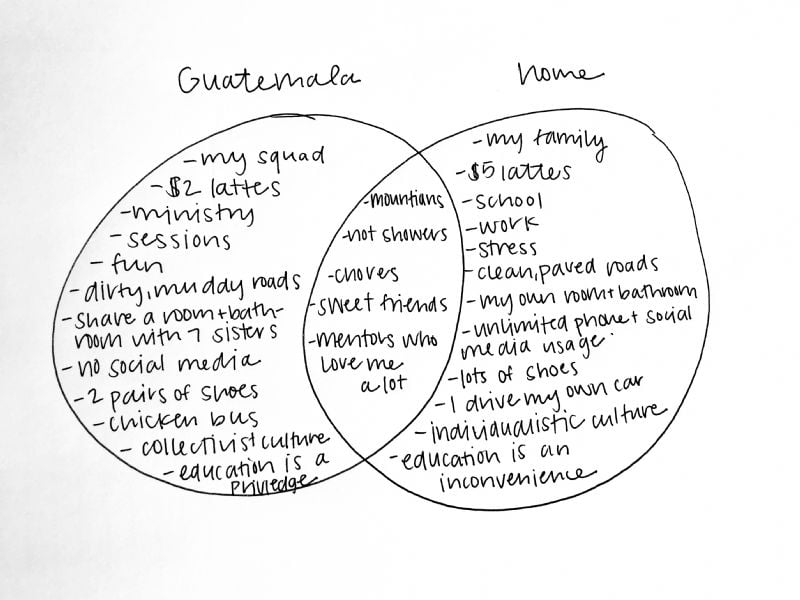 Guatemala
- my squad
- $2 lattes
- ministry
- sessions
- fun
- dirty, muddy roads
- share a room + bath-
room with 7 sisters
- no social media
- 2 pairs of shoes
- chicken bus
- collectivist culture
- education is a
priviledge
- mountians
- hot showers
- chores
- sweet friends
- mentors who
love me
a lot
home
- my family
- $5 lattes
- school
- work
- stress
- clean, paved roads
- my own room + bathroom
- unlimited phone + social
media usage
- lots of shoes
- I drive my own car
- individualistic culture
- education is an
inconvenience